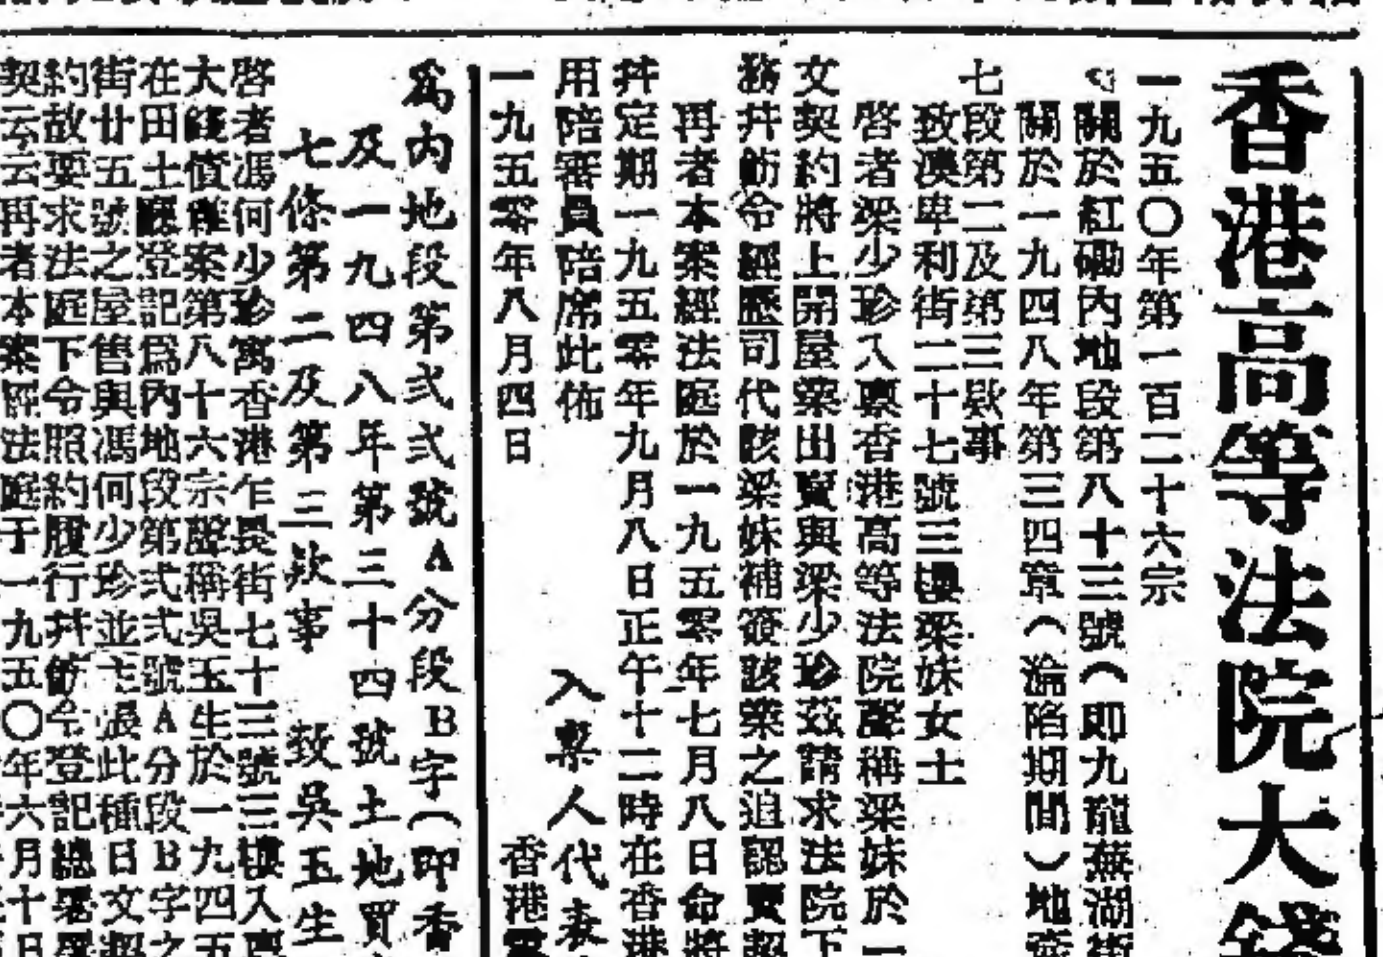 香港高等法院大錢
一九五〇年第一百二十六宗
關於紅磡內地段第八十三號（即九龍蕪湖街
關於一九四八年第三四章（淪陷期間）地產
七段第二及第三欵事
致澳卑利街二十七號三樓梁妹女士
啓者梁少珍入禀香港高等法院聲稱梁妹於一
文契約將上開屋業出賣與梁少珍茲請求法院下
務幷飭令經歷司代該梁妹補簽該業之追認賣契
再者本案經法庭於一九五零年七月八日命將
幷定期一九五零年九月八日正午十二時在香港
用陪審員陪席此佈
入禀人代表
一九五零年八月四日
香港
為內地段第弍弍號A分段B字（即香
及一九四八年第三十四號土地買
七條第二及第三欵事 致吳玉生
啓者馮何少珍寓香港乍畏街七十三號三樓入禀
大錢債雜案第八十六宗聲稱吳玉生於一九四五
在田土廳登記爲內地段第弍弍號A分段B字之
街廿五號之屋售與馮何少珍並主張此種日文契
約故要求法庭下令照約履行幷飭令登記總署
契云云再者本案經法庭于一九五〇年六月十日